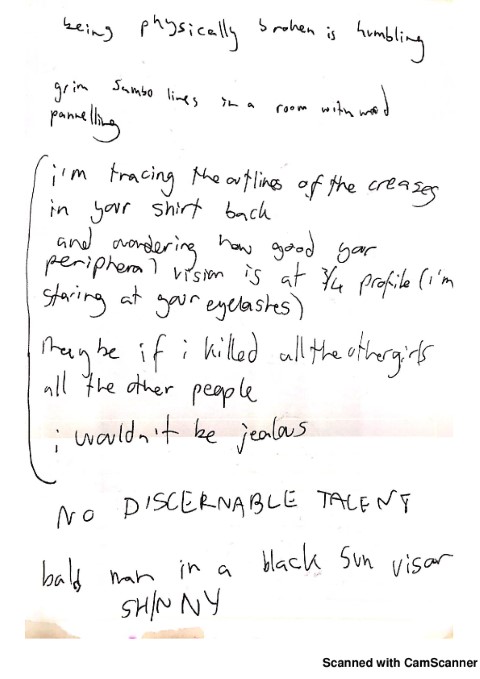 being physically broken is humbling
grim Sumbo lives in a room with wood
pannelling
i'm tracing the outlines of the creases
in your shirt back
and wondering how good your
peripheral vision is at 3/4 profile (i'm
staring at your eyelashes)
maybe if i killed all the other girls
all the other people
i wouldn't be jealous
NO DISCERNABLE TALENT
bald man in a black sun visar
SHINNY
Scanned with CamScanner